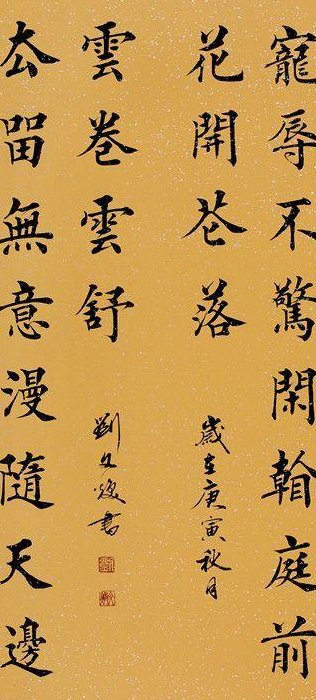 寵辱不驚閑翰庭前
花開芲落
歲在庚寅秋月
厺㽞無意漫隨天邊
雲卷雲舒
劉文煥書